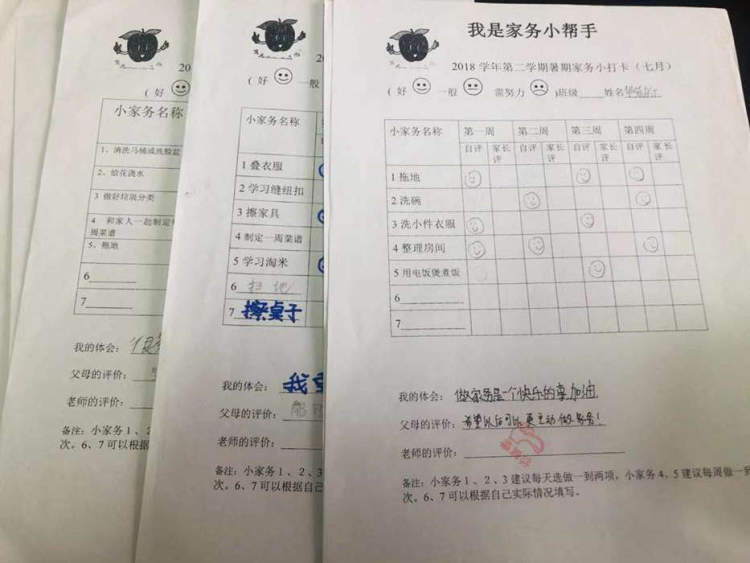 小家务名称
1、清洗马桶或洗脸盆
2、给花浇水
3 做好垃圾分类
4 和家人一起制定
周菜谱
5、拖地
6
7
我的体会:
父母的评价:
老师的评价:
备注:小家务 1、2
次。6、7 可以根据
20
( 好 一般
小家务名称
1 叠衣服
2 学习缝纽扣
3 擦家具
4 制定一周菜谱
5 学习淘米
6 扫地
7 擦桌子
我的体会: 我
父母的评价:
老师的评价:
备注:小家务 1、2、3
次。6、7 可以根据自己
我是家务小帮手
2018 学年第二学期暑期家务小打卡(七月)
( 好 一般 需努力 )班级 姓名
小家务名称 第一周 第二周 第三周 第四周
自评 家长评 自评 家长评 自评 家长评 自评 家长评
1 拖地
2 洗碗
3 洗小件衣服
4 整理房间
5 用电饭煲煮饭
6
7
我的体会: 做家务是一个快乐的事加油
父母的评价: 希望以后可以更主动做家务!
老师的评价:
备注:小家务 1、2、3 建议每天选做一到两项,小家务 4、5 建议每周做一到
次。6、7 可以根据自己实际情况填写。